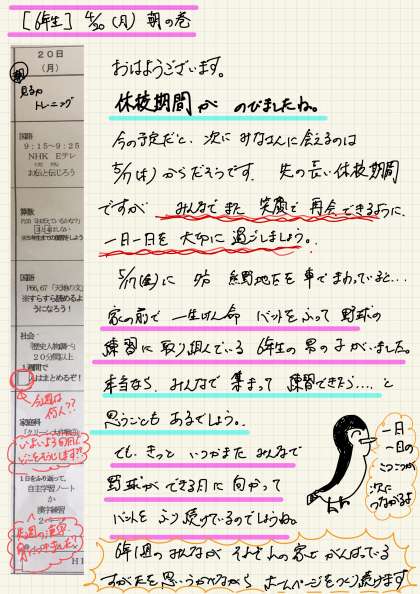 [6年生] 4/20(月) 朝の巻
おはようございます。
休校期間が のびましたね。
今の予定だと、次に みなさんに会えるのは
5/7(木)からだそうです。先の長い休校期間
ですが みんなでまた 笑顔で 再会できるように、
一日一日を 大切に 過ごしましょう。
家の前で 一生けん命 バットをふって 野球の
練習に取り組んでいる 6年生の男の子がいました。
本当なら、みんなで 集まって 練習できたら…と
思うことも あるでしょう。
でも、きっと いつかまた みんなで
野球ができる日に向かって
バットを ふり続けているのでしょうね。
6年1組の みんなが それぞれの家で がんばっている
すがたを 思いうかべながら ホームページをつくり続けます
一日
一日の
次に
つながるよ
20日
(月)
朝
見るや
トレーニング
国語
9:15~9:25
NHK Eテレ
お伝と伝じろう
算数
国語
P66,67「天地の文」
※すらすら読めるよ
うになろう!
社会
「歴史人物調べ」
20分間以上
1週間で
人はまとめるぞ!
今週は
何人??
家庭科
「クリーン大作戦」
1日をふり返って、
自主学習ノート
か
漢字練習
2ページ